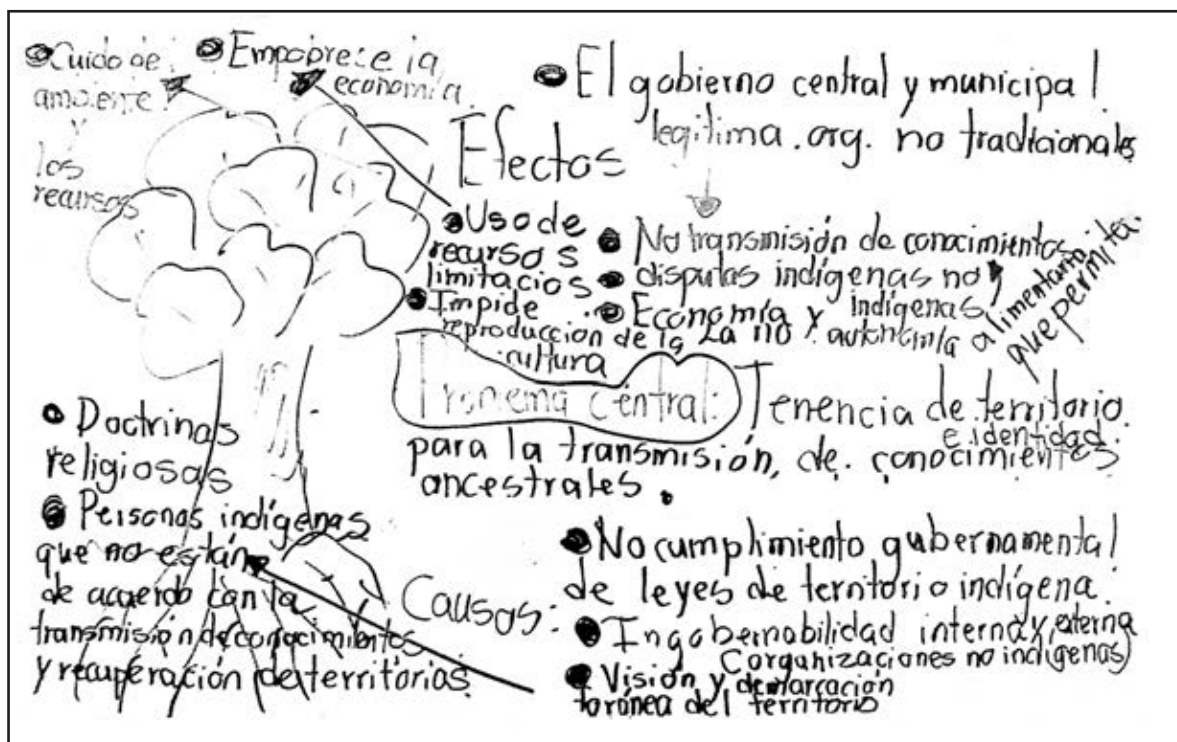 Cuido del
ambiente
y
los
recursos
Empobrece la
economía
Efectos
El gobierno central y municipal
legitima. org. no tradicionales
Uso de
recursos
limitacios
Impide
reproducción de la
cultura
No transmisión de conocimientos
disputas indígenas no
indígenas
Economía y La no autonomía alimentaria
que permita.
Problema central: Tenencia de territorio
e identidad
para la transmisión, de conocimientos
ancestrales.
Doctrinas
religiosas
Personas indígenas
que no están
de acuerdo con la
transmisión de conocimientos
y recuperación de territorios
Causas:
No cumplimiento gubernamental
de leyes de territorio indígena.
Ingobernabilidad interna y externa
(organizaciones no indígenas)
Visión y demarcación
del territorio